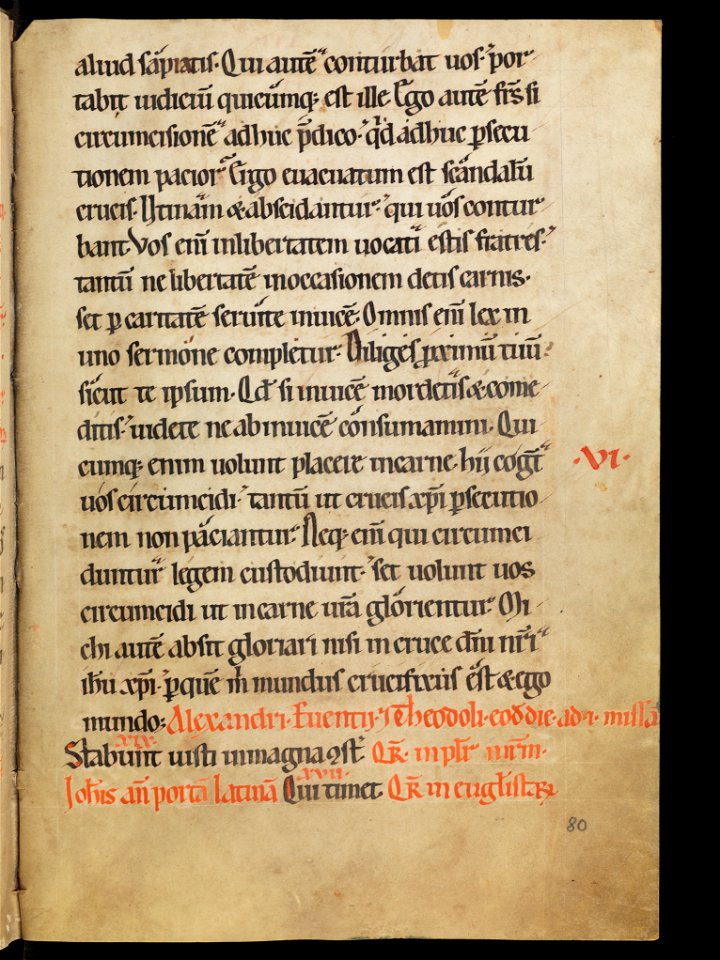 aliud sapiatis. Qui autē conturbat uos. por-
tabit iudiciū quicūmq; est ille. Ego autē frs̄ si
circumcisionē adhuc p̄dico. qd̄ adhuc psecu-
tionem pacior. Ergo euacuatum est scandalū
crucis. Utinam & abscidantur. qui uos contur-
bant. Vos enī inlibertatem uocati estis fratres.
tantū ne libertatē inoccasionem detis carnis.
set p caritatē seruite inuicē. Omnis enī lex in
uno sermone completur. Diliges pximū tuū
sicut te ipsum. Qd̄ si inuicē mordetis & come-
ditis. uidete ne abinuicē consumamini. Qui-
cumq; enim uolunt placere incarne. hij cogt̄ ·VI·
uos circumcidi. tantū ut crucis xp̄i psecutio-
nem non paciantur. Neq; enī qui circumci-
duntur legem custodiunt. set uolunt uos
circumcidi ut incarne urā glorientur. Mi-
chi autē absit gloriari nisi in cruce dn̄i nr̄i
ih̄u xp̄i. p quē m̄ mundus crucifixus est & ego
mundo: Alexandri. Euentij. Theodoli. eoddie. ad i. missā
xix.
Stabunt iusti inmagna 9st. QR. in plr̄
xvii.
Joh̄is añ portā latinā Qui timet. QR in eugl̄istaꝝ
80